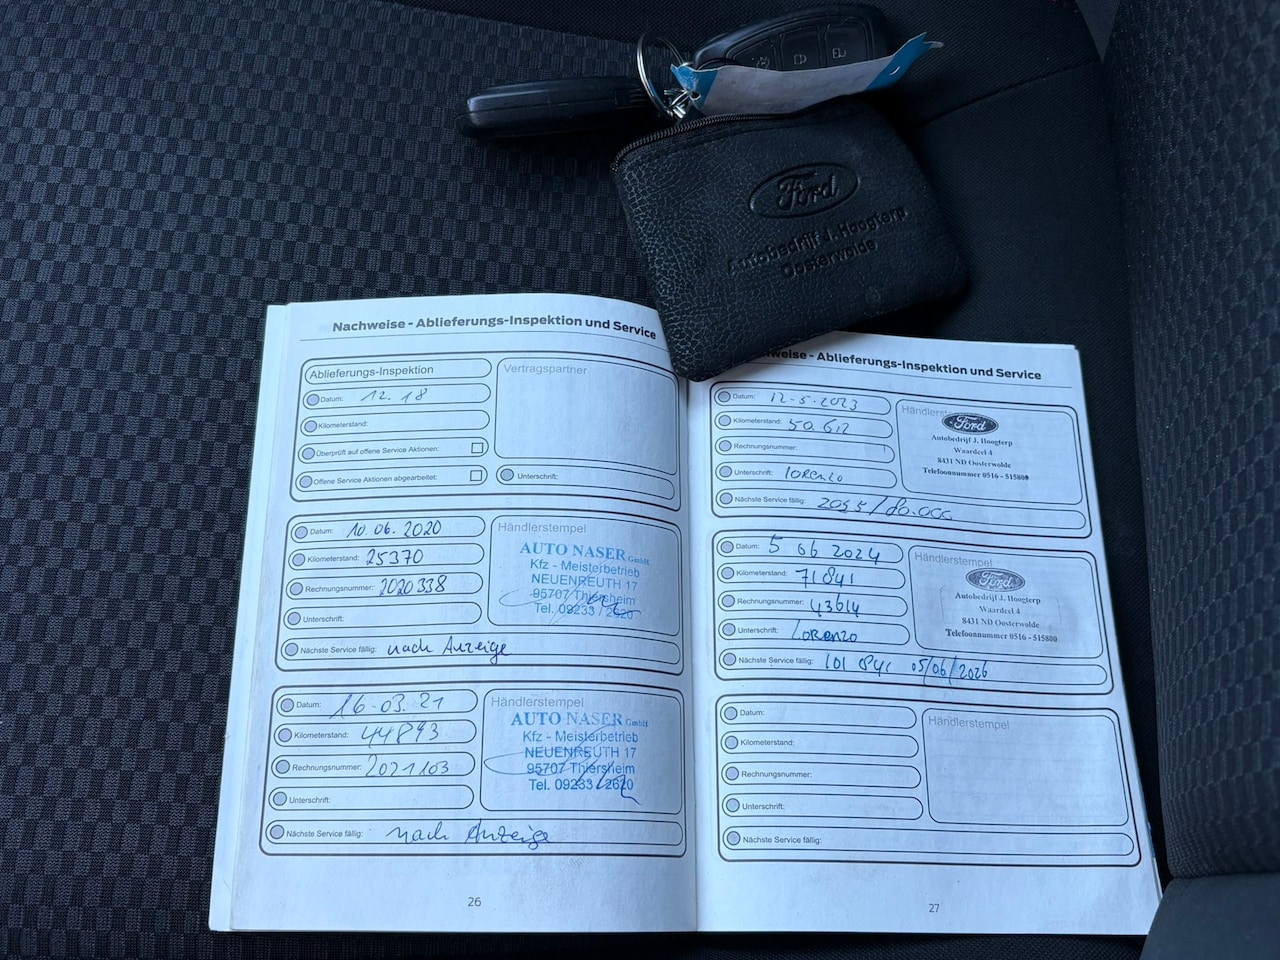 Ford
Autobedrijf J. Hoogterp
Oosterwolde
Nachweise - Ablieferungs-Inspektion und Service
Ablieferungs-Inspektion
Datum: 12. 18
Kilometerstand:
Überprüft auf offene Service Aktionen:
Offene Service Aktionen abgearbeitet:
Vertragspartner
Unterschrift:
Datum: 10.06.2020
Kilometerstand: 25370
Rechnungsnummer: 2020338
Unterschrift:
Nächste Service fällig: nach Anzeige
Händlerstempel
AUTO NASER GmbH
Kfz - Meisterbetrieb
NEUENREUTH 17
95707 Thiersheim
Tel. 09233 / 2620
Datum: 16-03.21
Kilometerstand: 44893
Rechnungsnummer: 2021103
Unterschrift:
Nächste Service fällig: nach Anzeige
Händlerstempel
AUTO NASER GmbH
Kfz - Meisterbetrieb
NEUENREUTH 17
95707 Thiersheim
Tel. 09233 / 2620
26
weise - Ablieferungs-Inspektion und Service
Datum: 12-5-2023
Kilometerstand: 50.612
Rechnungsnummer:
Unterschrift: Lorenzo
Nächste Service fällig: /80.000
Händlerstempel
Ford
Autobedrijf J. Hoogterp
Waardeel 4
8431 ND Oosterwolde
Telefoonnummer 0516 - 515800
Datum: 5 06 2024
Kilometerstand: 71841
Rechnungsnummer: 43614
Unterschrift: Lorenzo
Nächste Service fällig: 101 841 05/06/2026
Händlerstempel
Ford
Autobedrijf J. Hoogterp
Waardeel 4
8431 ND Oosterwolde
Telefoonnummer 0516 - 515800
Datum:
Kilometerstand:
Rechnungsnummer:
Unterschrift:
Nächste Service fällig:
Händlerstempel
27